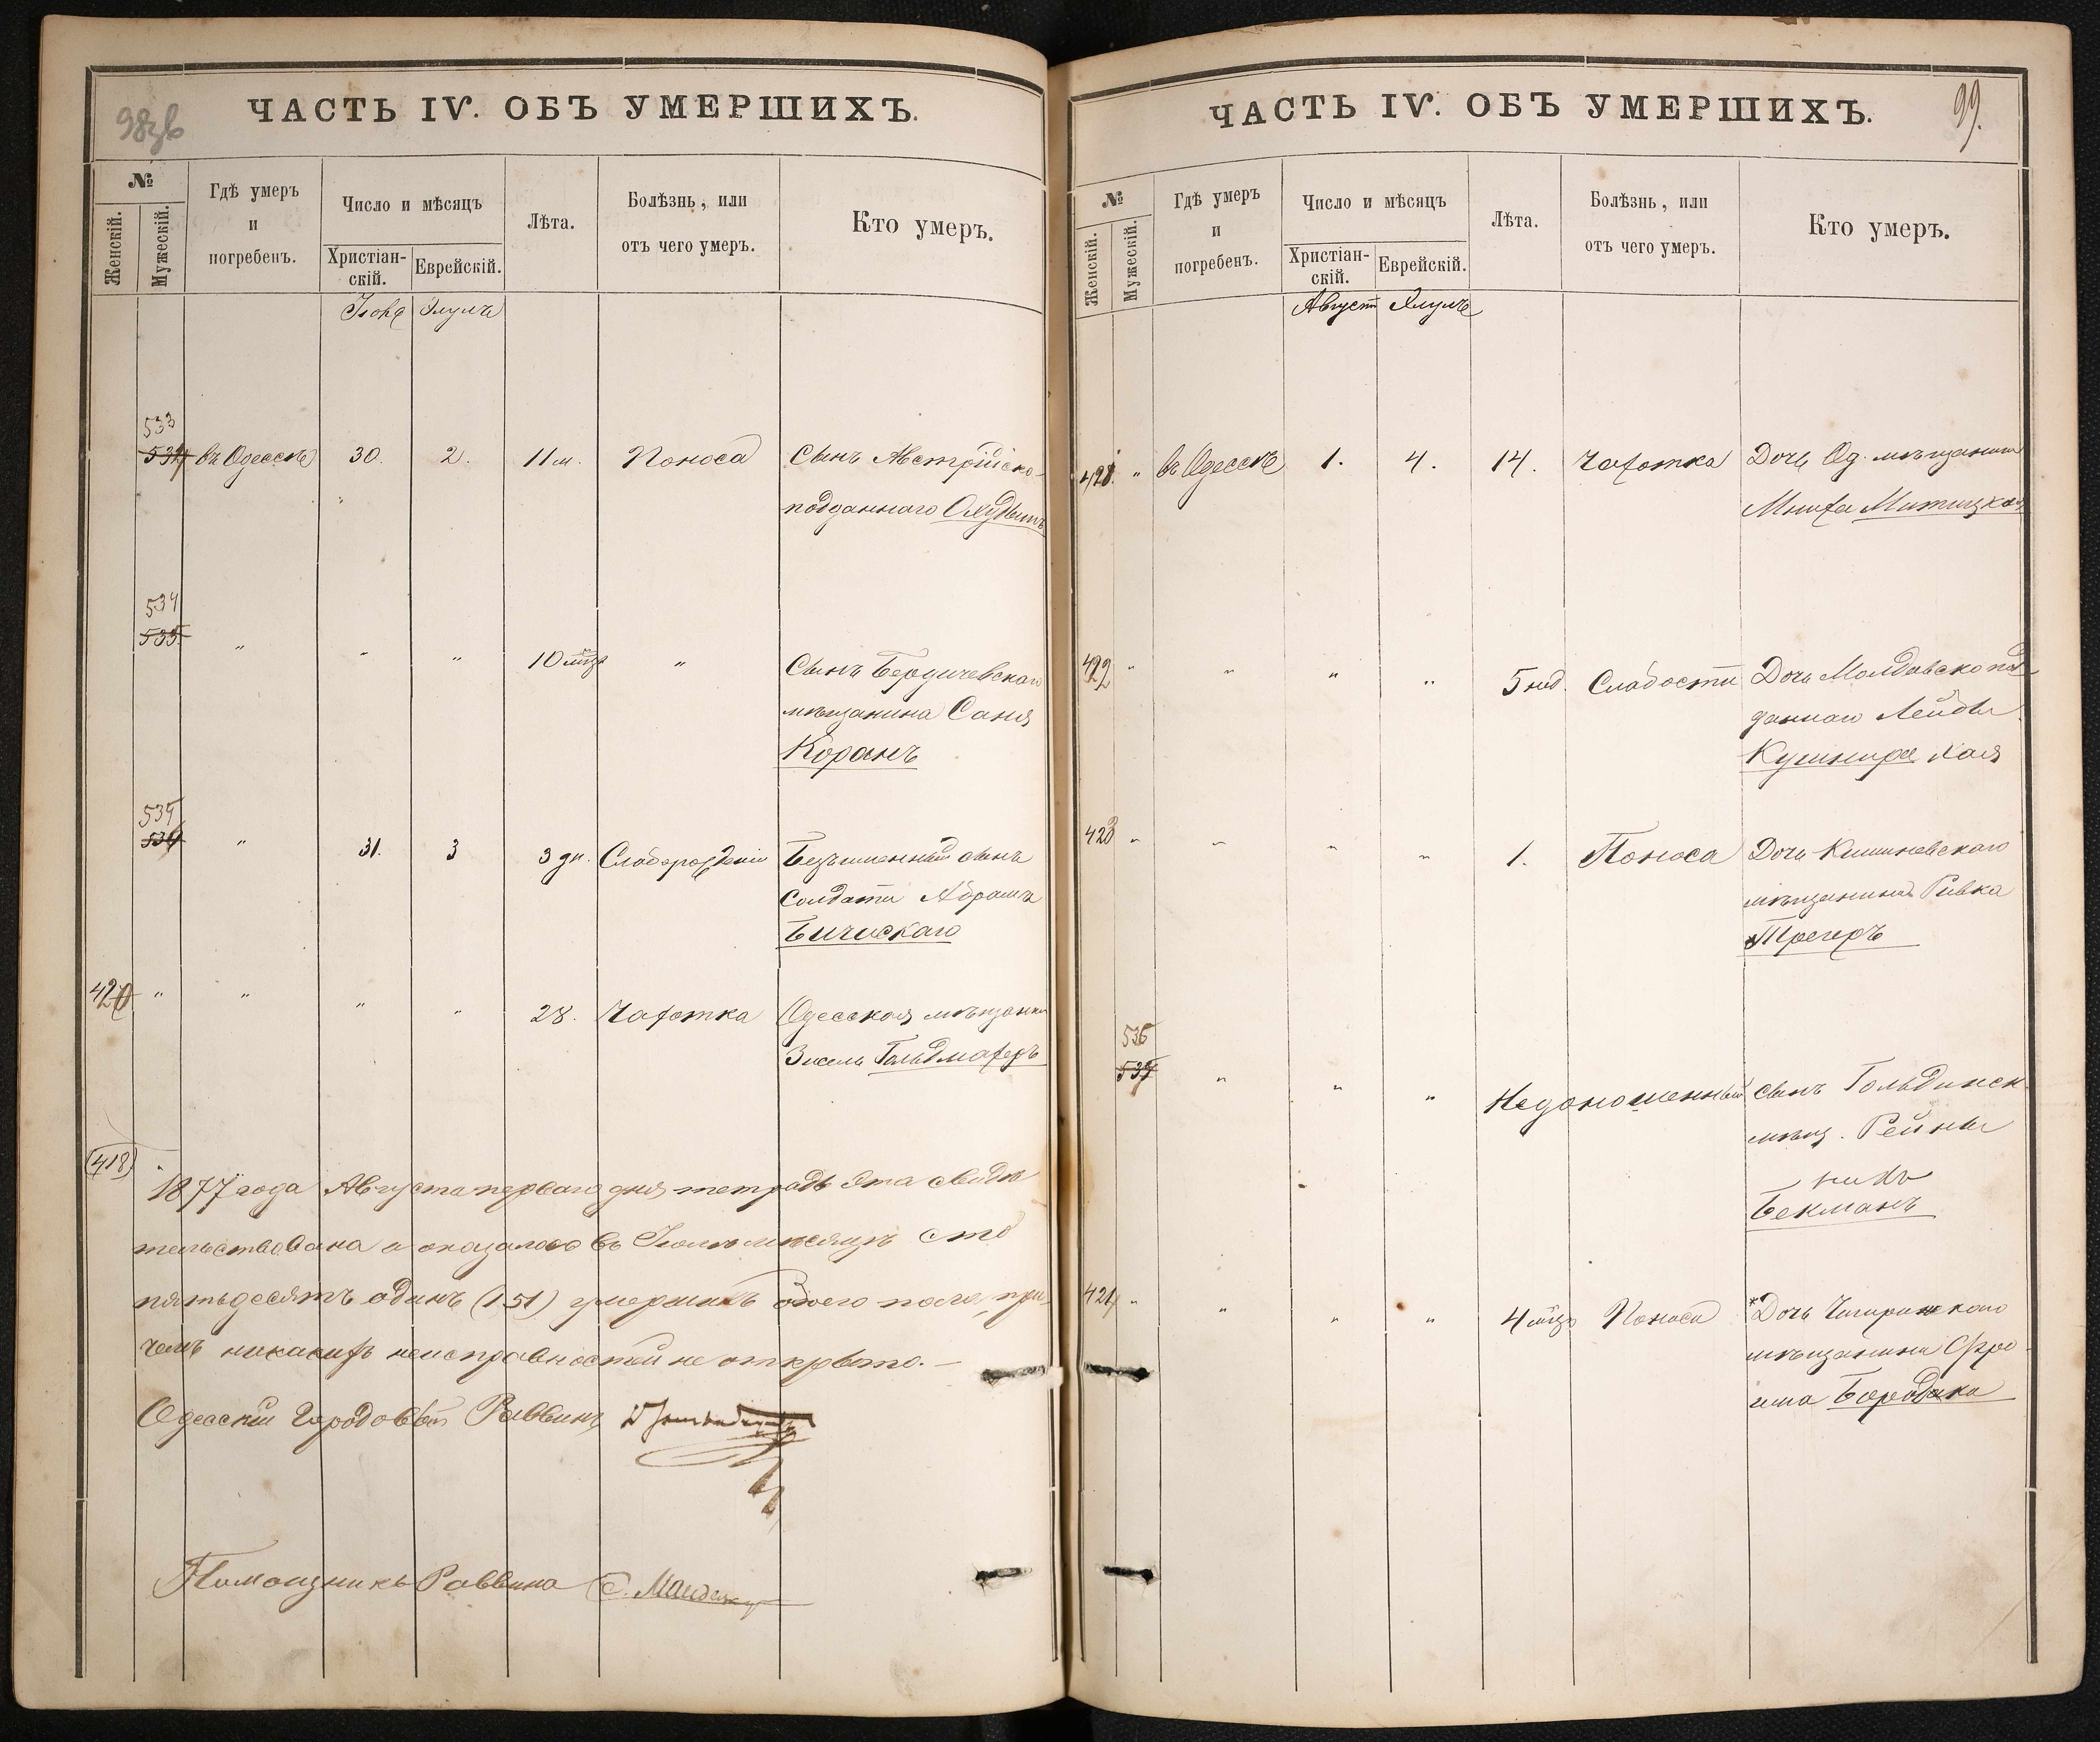 98зв
ЧАСТЬ IV. ОБЪ УМЕРШИХЪ.
№
Женскій.
Мужескій.
Гдѣ умеръ
и
погребенъ.
Число и мѣсяцъ
Христіан-
скій.
Еврейскій.
Лѣта.
Болѣзнь, или
отъ чего умеръ.
Кто умеръ.
Элулъ
533
въ Одессѣ 30. 2. 11 м. Поноса Сынъ Австрійско-
подданнаго
534
535
" " " 10 мѣц " Сынъ Бердичевскаго
мѣщанина Саня
Коранъ
535
536
" 31. 3 3 дн. Слаборожденія Безъименный сынъ
Солдата Абрама
420 " " " " 28. Чахотка Одесская мѣщанка
Зисель Гольдмахеръ
(418)
1877 года Августа перваго дня тетрадь эта свидѣ
тельствована и оказалось въ Іюлѣ мѣсяцѣ сто
пятьдесятъ одинъ (151) умершихъ обоего пола, при
чемъ никакихъ неисправностей не открыто. —
Одесскій Городовый Раввинъ
Помощникъ Раввина С. Мандель
99.
ЧАСТЬ IV. ОБЪ УМЕРШИХЪ.
№
Женскій.
Мужескій.
Гдѣ умеръ
и
погребенъ.
Число и мѣсяцъ
Христіан-
скій.
Еврейскій.
Лѣта.
Болѣзнь, или
отъ чего умеръ.
Кто умеръ.
Августъ Элулъ
421. " въ Одессѣ 1. 4. 14. Чахотка Дочь Од. мѣщанина
422 " " " " 5 нед. Слабости Дочь Молдавско под
даннаго Лейбы
Кушнира Хая
423 " " " " 1. Поноса Дочь Кишиневскаго
мѣщанина Ривка
Трегеръ
536
537
" " " Недоношенный сынъ Гольдинск
мѣщ. Рейны
Бекманъ
424 " " " " 4 мѣц Поноса *Дочь Чигиринскаго
мѣщанина Фро
има Бородака